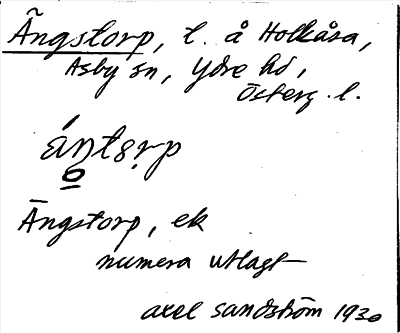 Ängstorp, t. å Holkåsa,
Asby sn, Ydre hd,
Österg. l.
áŋtsrp
o
Ängstorp, ek
numera utlagt
Axel Sandström 1930